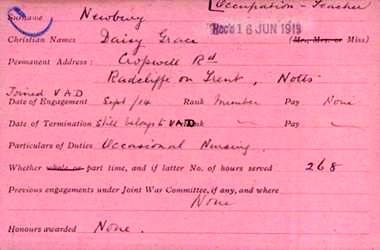 Occupation - Teacher
Surname Newbury
Rec'd 16 JUN 1919
Christian Names Daisy Grace (Mr., Mrs. or Miss)
Permanent Address : Cropwell Rd
Radcliffe on Trent, Notts
Joined V.A.D
Date of Engagement Sept/14 Rank Member Pay None
Date of Termination Still belongs to VAD Rank — Pay —
Particulars of Duties Occasional Nursing.
Whether whole or part time, and if latter No. of hours served 268
Previous engagements under Joint War Committee, if any, and where
None
Honours awarded None.